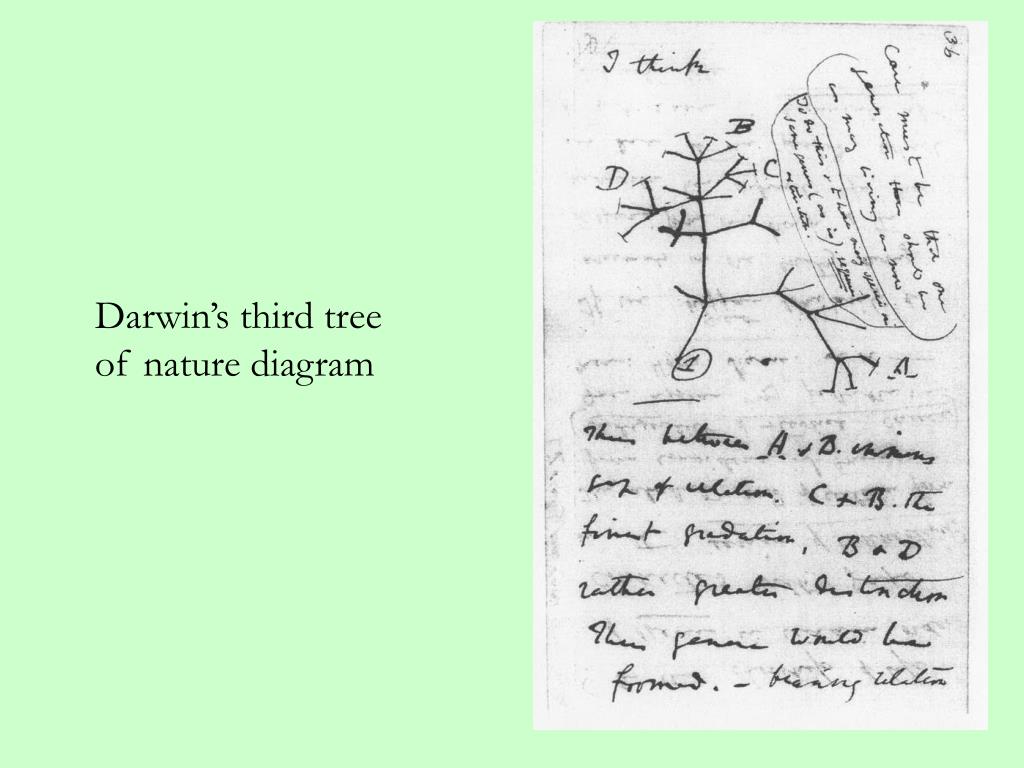 Darwin's third tree
of nature diagram
36
I think
B
C
D
A
1
Case must be that one
generation then should be
as many living as now
To do this & to have many species in
same genus (as is). requires
extinction.
Thus between A & B. immens
gap of relation. C & B. the
finest gradation, B & D
rather greater distinction
Thus genera would be
formed. — bearing relation